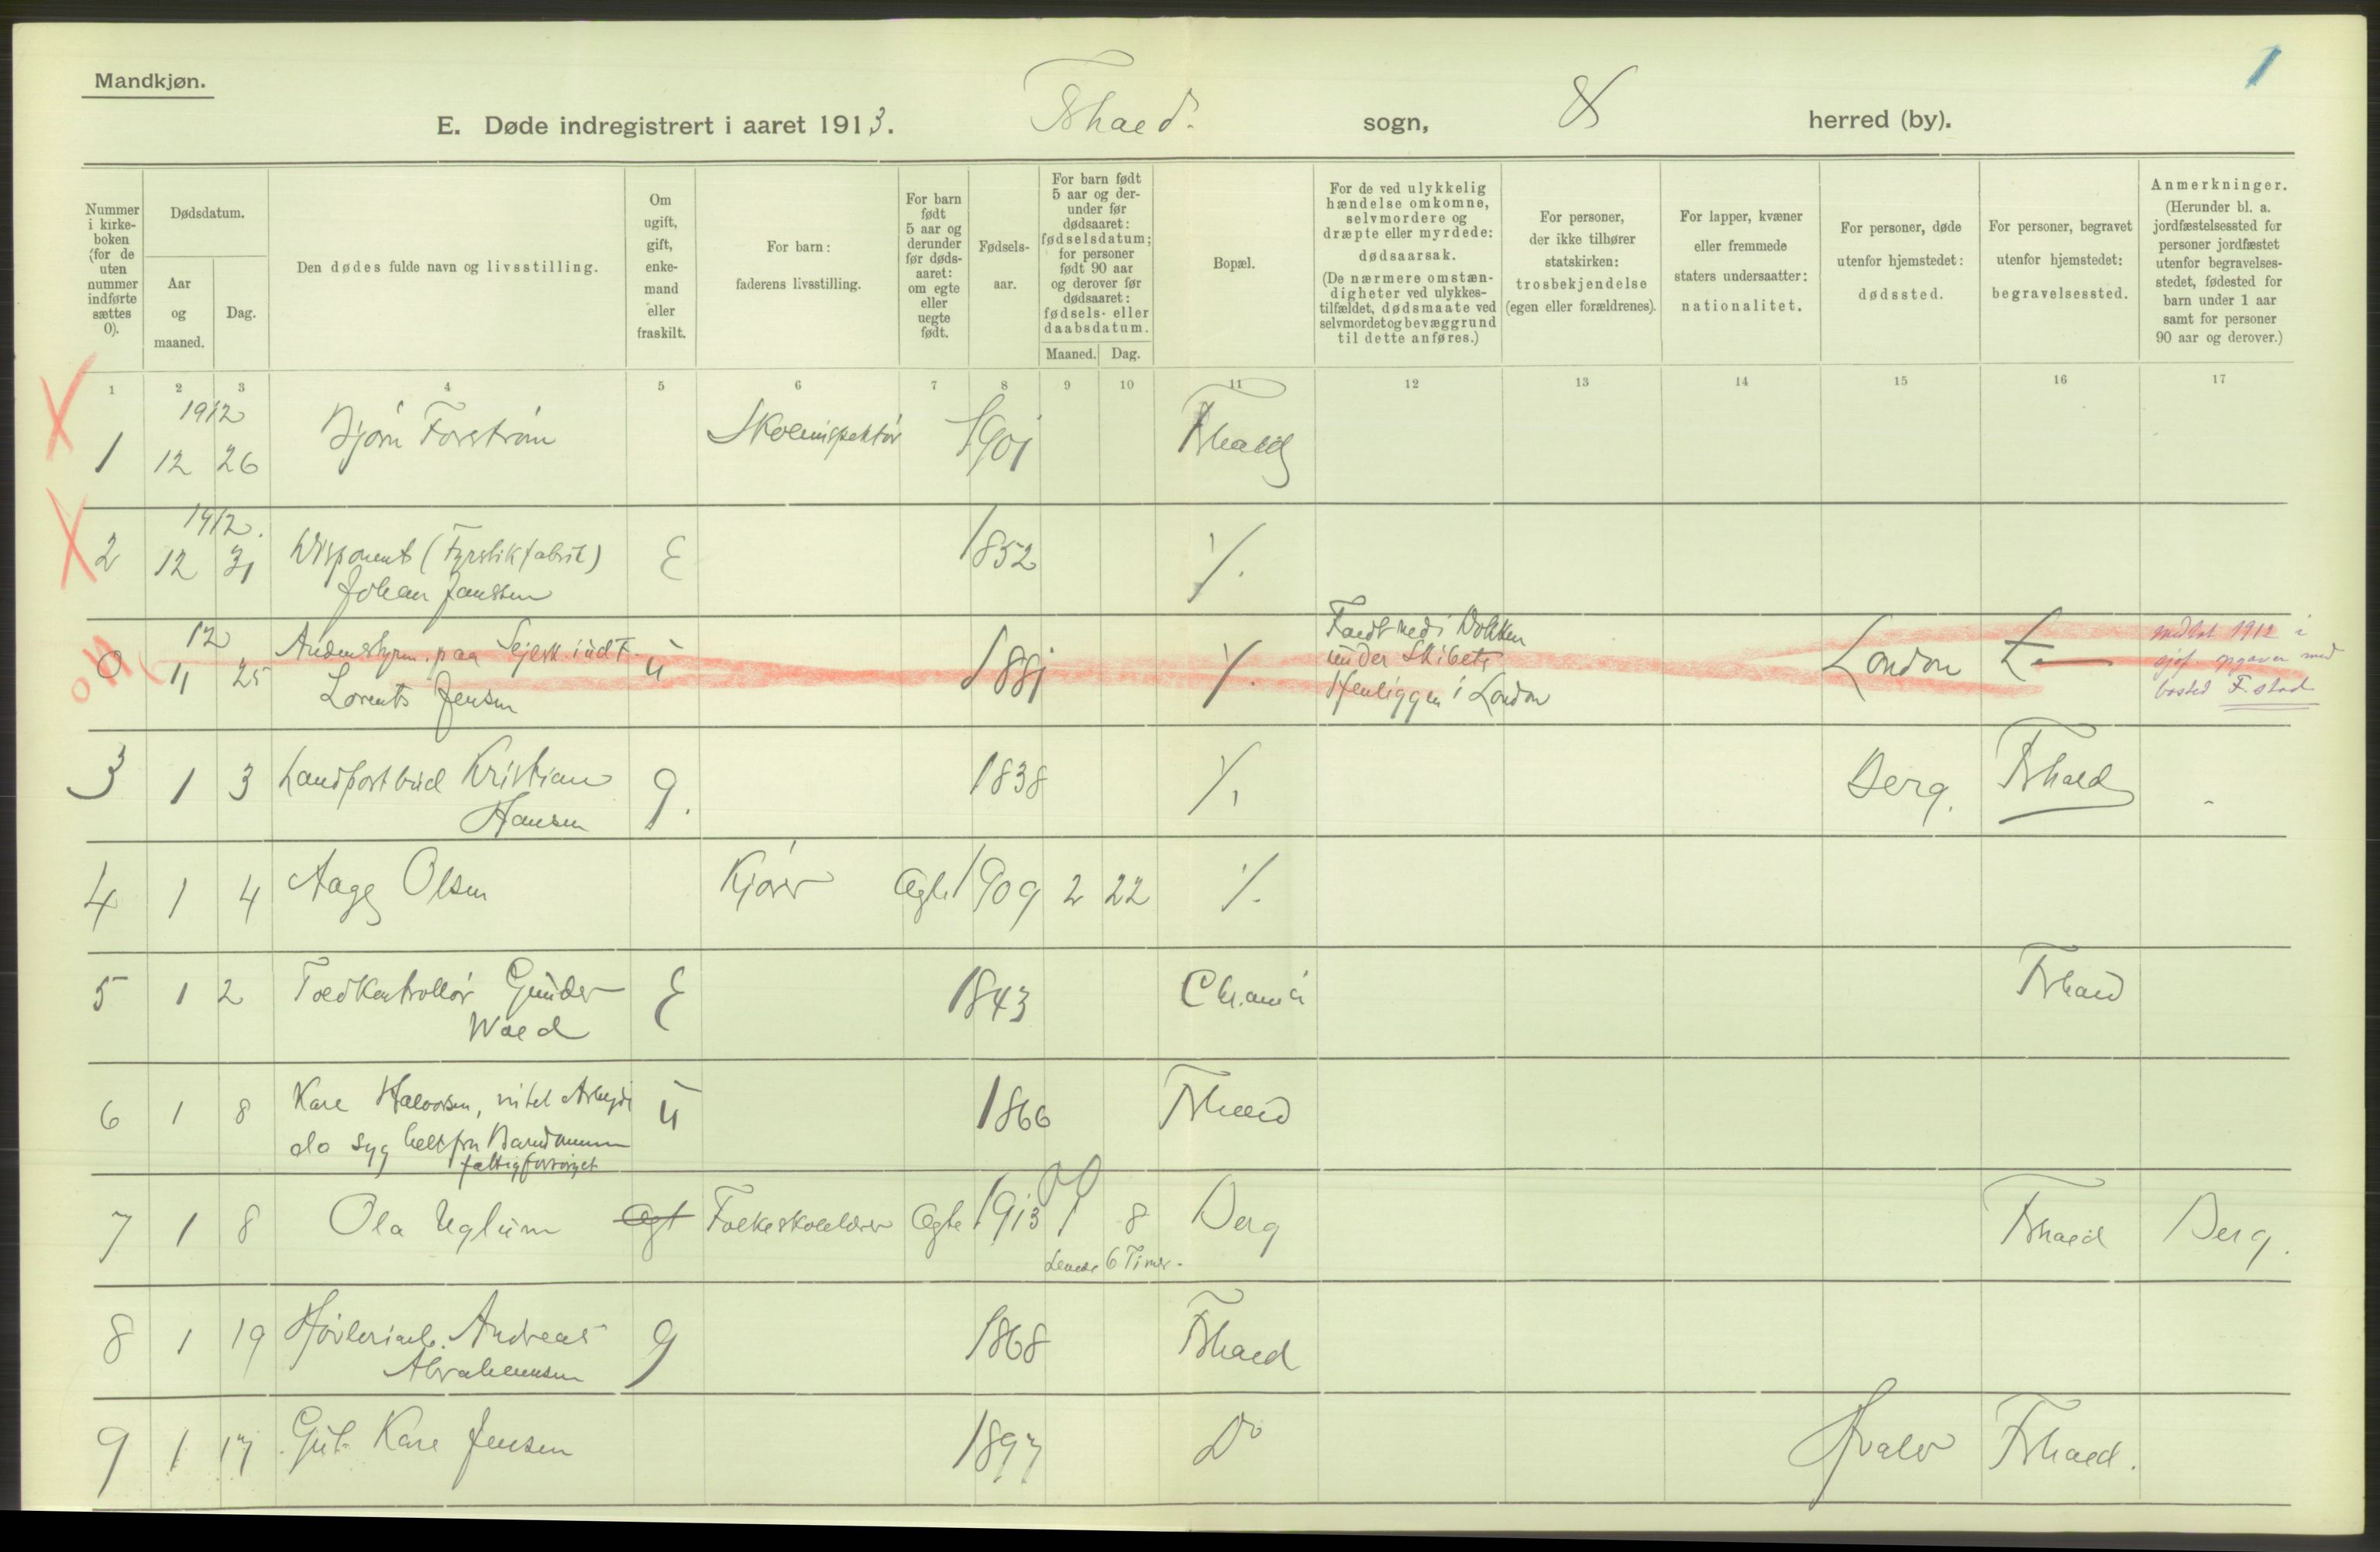 Mandkjøn.
1
E. Døde indregistrert i aaret 1913. Fshald. sogn, herred (by).
Nummer i kirke-boken (for de uten nummer indførte sættes 0).
Dødsdatum.
Aar og maaned.
Dag.
Den dødes fulde navn og livsstilling.
Om ugift, gift, enke-mand eller fraskilt.
For barn: faderens livsstilling.
For barn født 5 aar og derunder før døds-aaret: om egte eller uegte født.
Fødsels-aar.
For barn født 5 aar og der-under før dødsaaret: fødselsdatum; for personer født 90 aar og derover før dødsaaret: fødsels- eller daabsdatum.
Maaned. Dag.
Bopæl.
For de ved ulykkelig hændelse omkomne, selvmordere og dræpte eller myrdede: dødsaarsak.
(De nærmere omstæn-digheter ved ulykkes-tilfældet, dødsmaate ved selvmordet og bevæggrund til dette anføres.)
For personer, der ikke tilhører statskirken: trosbekjendelse (egen eller forældrenes).
For lapper, kvæner eller fremmede staters undersaatter: nationalitet.
For personer, døde utenfor hjemstedet: dødssted.
For personer, begravet utenfor hjemstedet: begravelsessted.
Anmerkninger.
(Herunder bl. a. jordfæstelsessted for personer jordfæstet utenfor begravelses-stedet, fødested for barn under 1 aar samt for personer 90 aar og derover.)
1 2 3 4 5 6 7 8 9 10 11 12 13 14 15 16 17
1912
1 12 26 Bjørn Forstrøm Skoleinspektør 1901 Fshald
1912.
2 12 31 Disponent (Fyrstikfabrik) E 1852 ⁒
Johan Janssen
12
0 11 25 Andenstyrm. paa Sejlsk. i udt F. u 1881 ⁒ Faldt ned i Dokken London
Lorents Jensen under Skibets
Henliggen i London
meldt 1912 i
opgaver med
bosted F.stad
3 1 3 Landpostbud Kristian g. 1838 ⁒ Berg. Fshald
Hansen
4 1 4 Aage Olsen Kjører Ægte 1909 2 22 ⁒
5 1 2 Toldkontrollør Gunder E 1843 Chr.ania Fshald
Wold
6 1 8 Karl Halvorsen, intet Arbejde u 1866 Fshald
da syg helt fra Barndommen
fattigforsørget
7 1 8 Ola Uglum Ægt Folkeskolelærer Ægte 1913 1 8 Berg Fshald Berg.
Levede 6 Timer.
8 1 19 Høvleriarb. Andreas g 1868 Fshald
Abrahamsen
9 1 17 Gut Karl Jensen 1897 Do Hvaler Fshald.